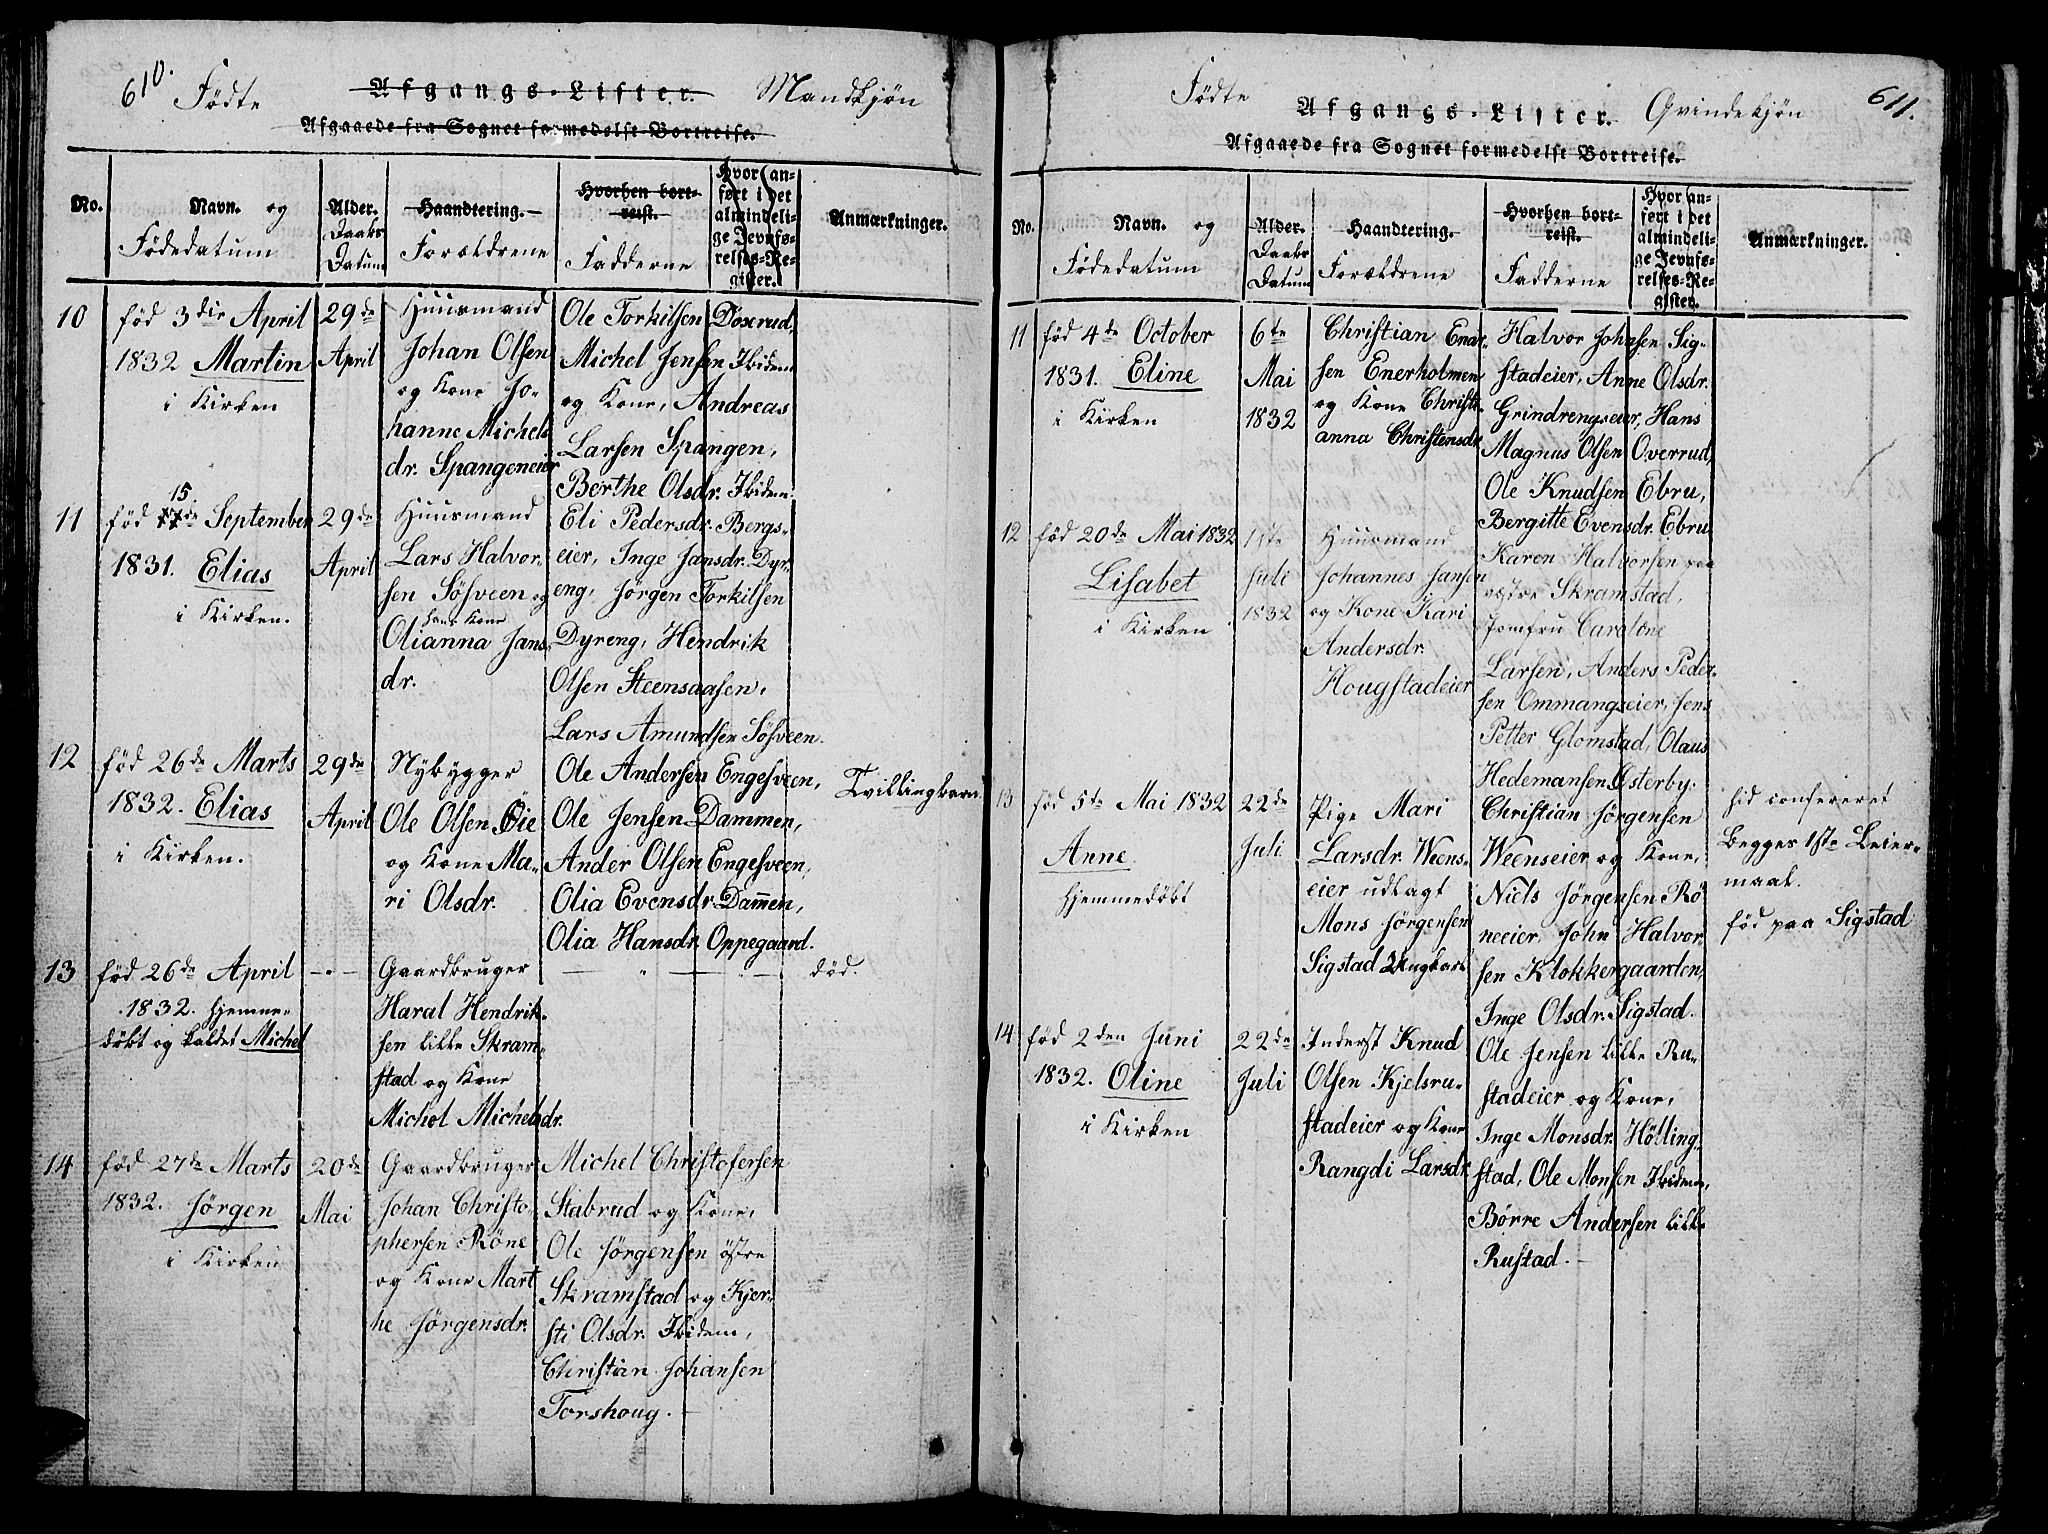 610. Fødte Afgangs-Lister. Mandkjøn
Afgaaede fra Sognet formedelst Bortreise.
No.
Navn. og
Fødedatum
Alder.
Daabs
Datum
Haandtering.
Forældrene
Hvorhen bort-
reist.
Fadderne
Hvor an-
ført i det
almindeli-
ge Jevnfø-
relses-Re-
gister.
Anmærkninger.
10
fød 3die April
1832 Martin
i Kirken
29de
April
Huusmand
Johan Olsen
og Kone Jo-
hanne Michels
dr. Spangeneier
Ole Torkilsen Døserud,
Michel Jensen Ibidem
og Kone, Andreas
Larsen Spangen,
Berthe Olsdr. Ibidem.
11
15
fød de September
1831. Elias
i Kirken.
29de
April
Huusmand
Lars Halvor-
sen Søsveen og
hans Kone
Olianna Jans-
dr.
Eli Pedersdr. Bergs-
eier, Inge Jansdr. Dyr-
eng, Jørgen Torkilsen
Dyreng, Hendrik
Olsen Steensaasen,
Lars Amundsen Søsveen.
12
fød 26de Marts
1832. Elias
i Kirken.
29de
April
Nybygger
Ole Olsen Øie
og Kone Ma-
ri Olsdr.
Ole Andersen Engesveen,
Ole Jensen Dammen,
Ander Olsen Engesveen,
Olia Evensdr. Dam̄en,
Olia Hansdr. Oppegaard.
Tvillingbarn
13
fød 26de April
1832. hjemme-
døbt og kaldet Michel
- - -
Gaardbruger
Haral Hendrik-
sen lille Skram-
stad og Kone
Michol Michelsdr.
— " — — " —
død.
14
fød 27de Marts
1832. Jørgen
i Kirken
20de
Mai
Gaardbruger
Johan Christo-
phersen Røne
og Kone Mart
he Jørgensdr.
Michel Christofersen
Stabrud og Kone,
Ole Jørgensen østre
Skramstad og Kjer-
sti Olsdr. Ibidem,
Christian Johansen
Torshoug.
Fødte Afgangs-Lister. Qvindekjøn 611.
Afgaaede fra Sognet formedelst Bortreise.
No.
Navn. og
Fødedatum
Alder.
Daabs
Datum
Haandtering.
Forældrene
Hvorhen bort-
reist.
Fadderne
Hvor an-
ført i det
almindeli-
ge Jevnfø-
relses-Re-
gister.
Anmærkninger.
11
fød 4de October
1831. Eline
i Kirken
6te
Mai
1832
Christian Enar-
sen Enerholmen
og Kone Christi-
anna Christensdr.
Halvor Johnsen Sig-
stadeier, Anne Olsdr.
Grindrengseier, Hans
Magnus Olsen Overrud,
Ole Knudsen Ebru,
Bergitte Evensdr. Ebru
12
fød 20de Mai 1832
Lisabet
i Kirken
1ste
Juli
1832
Huusmand
Johannes Jansen
og Kone Kari
Andersdr.
Hougstadeier
Karen Halvorsen paa
østre Skramstad,
Jomfru Caroline
Larsen, Anders Peder-
sen Ommangseier, Jens
Petter Glomstad, Olaus
Hedemansen Østerby.
13
fød 5te Mai 1832
Anne
hjemmedøbt
22de
Juli
Pige Mari
Larsdr. Weens-
eier udlagt
Mons Jørgensen
Sigstad Ungkarl
Christian Jørgensen
Weenseier og Kone,
Niels Jørgensen Rø
neeier, John Halvor-
sen Klokkergaarden,
Inge Olsdr. Sigstad.
hid confereret
Begges 1ste Leier-
maal.
fød paa Sigstad
14
fød 2den Juni
1832. Oline
i Kirken
22de
Juli
Inderst Knud
Olsen Kjelsru-
stadeier og Kone
Rangdi Larsdr.
Ole Jensen lille Ru-
stadeier og Kone,
Inge Monsdr. Hølling-
stad, Ole Monsen Ibidem,
Børre Andersen lille
Rustad.